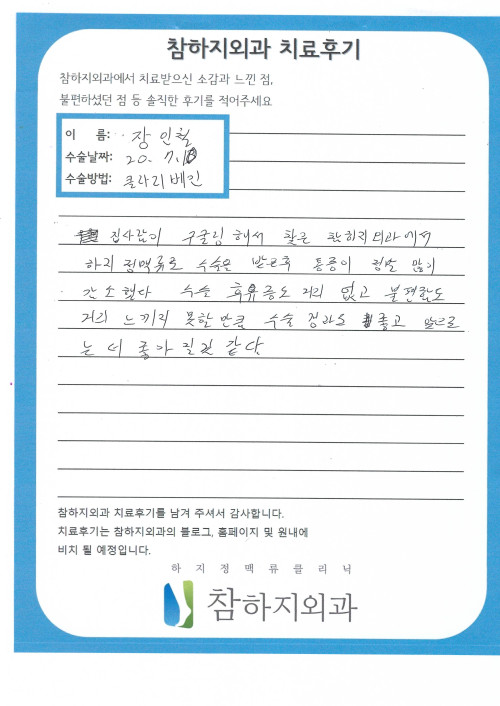 참하지외과 치료후기
참하지외과에서 치료받으신 소감과 느낀 점,
불편하셨던 점 등 솔직한 후기를 적어주세요
이 름: 장인철
수술날짜: 20. 7.18
수술방법: 클라리베인
집사람이 구글링해서 찾은 참하지외과에서
하지정맥류로 수술은 받은후 통증이 정말 많이
감소했다 수술 후유증도 거의 없고 불편함도
거의 느끼지 못할만큼 수술 결과도 좋고 앞으로
는 더 좋아 질것 같다.
참하지외과 치료후기를 남겨 주셔서 감사합니다.
치료후기는 참하지외과의 블로그, 홈페이지 및 원내에
비치 될 예정입니다.
하지정맥류클리닉
참하지외과